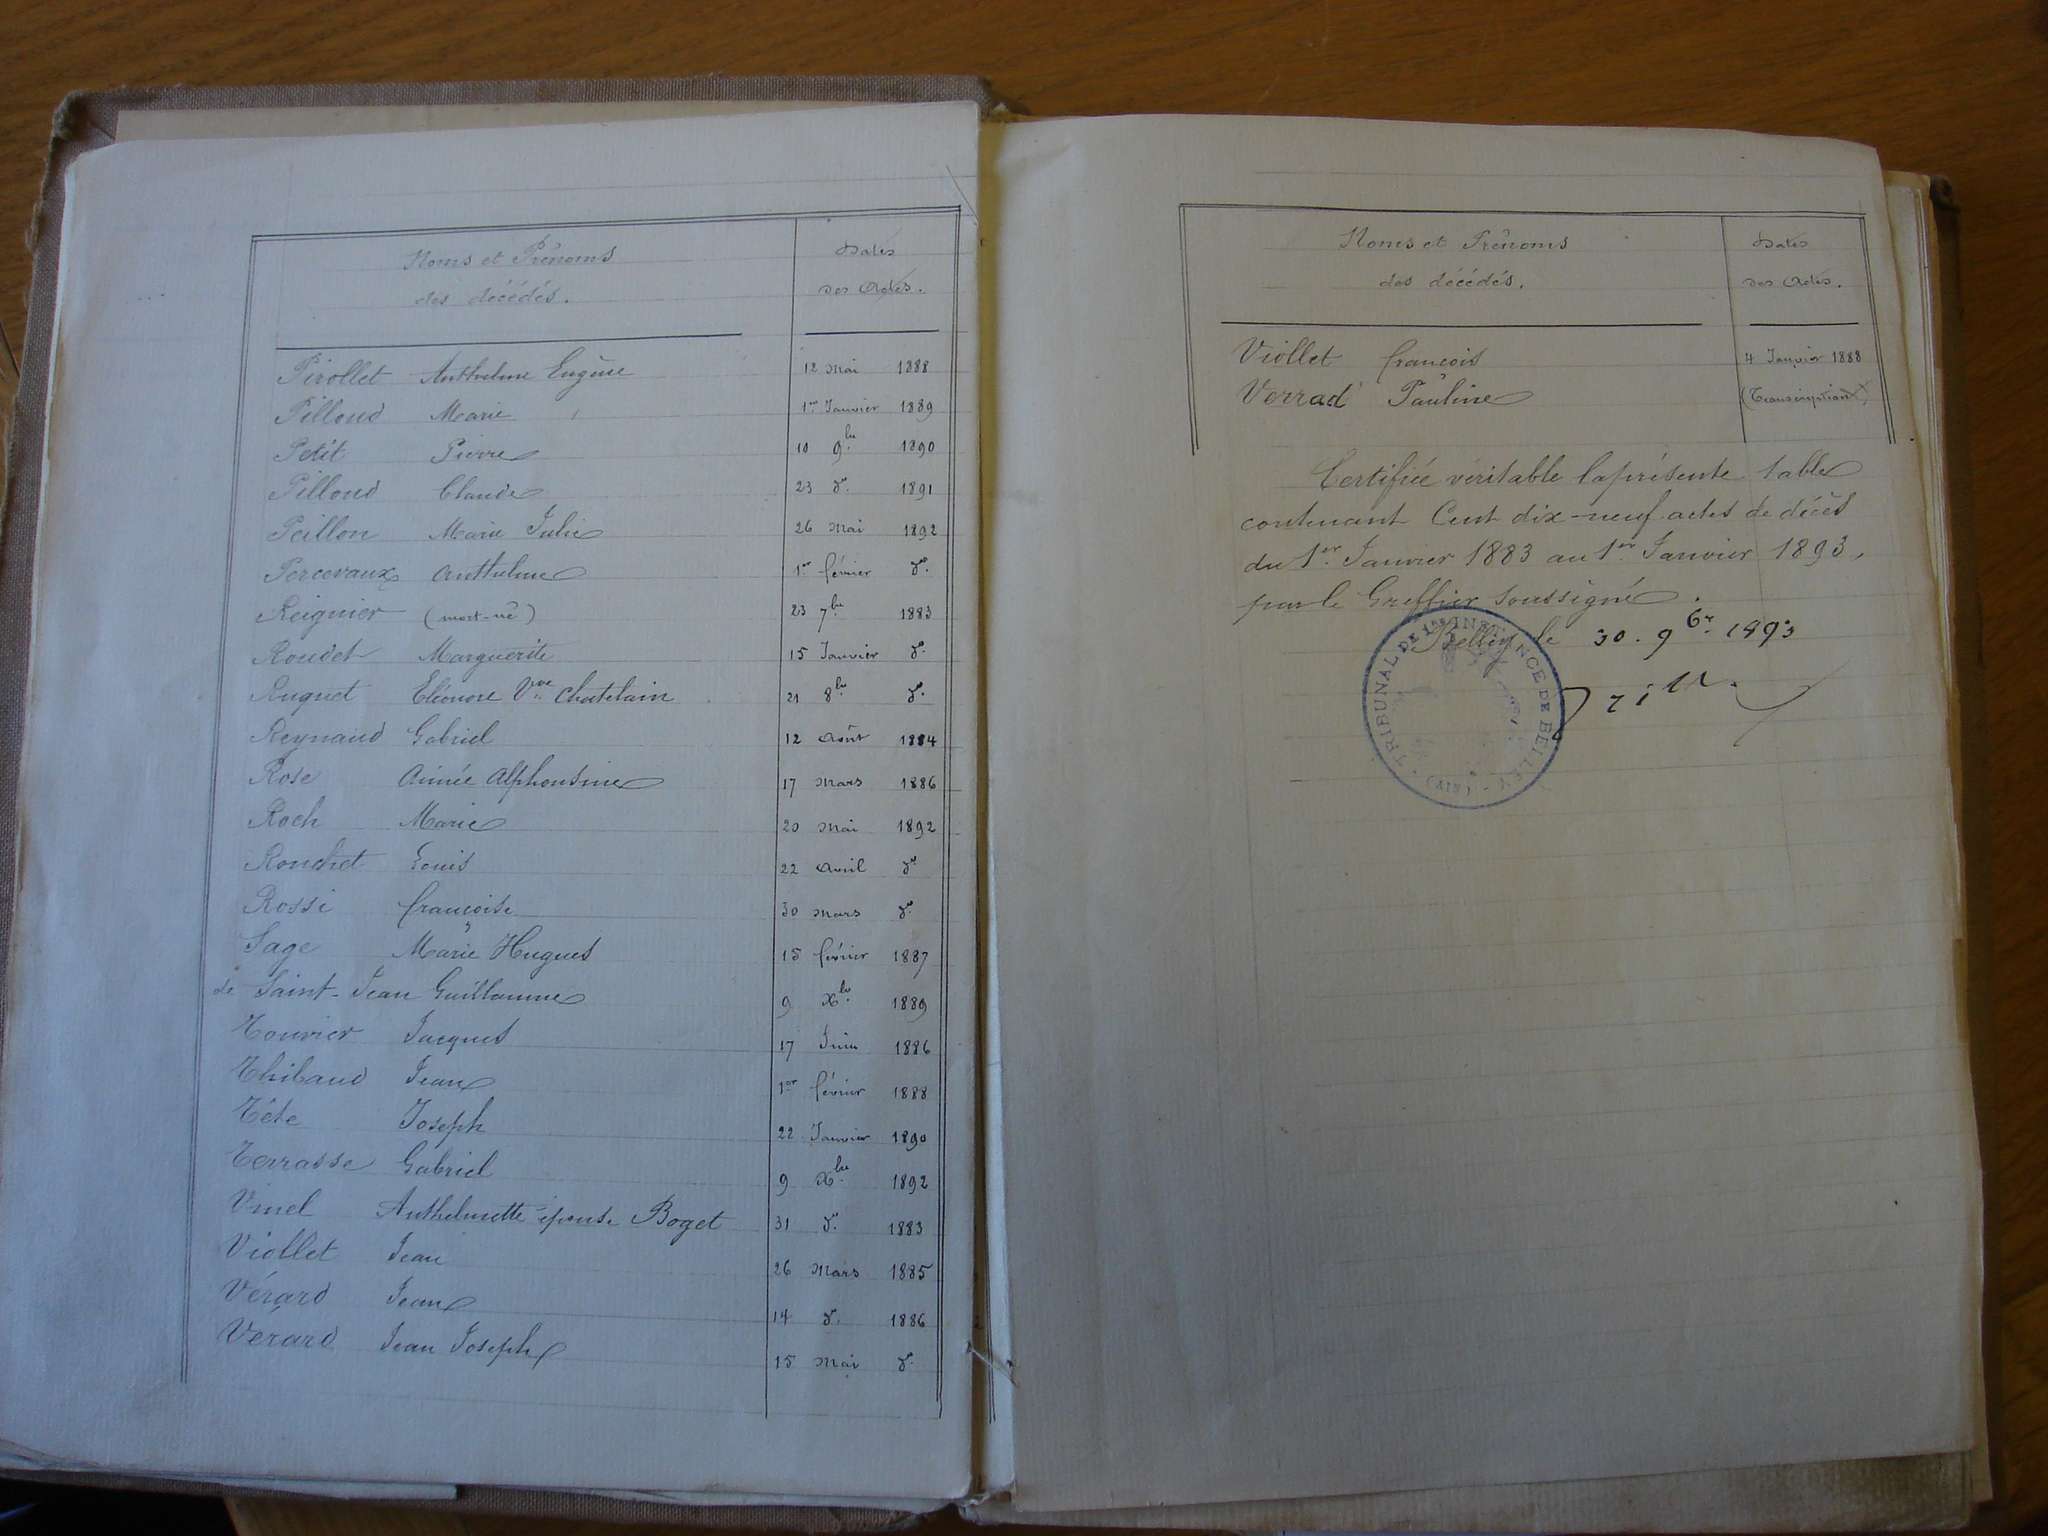 Noms et Prénoms
des décédés.
Dates
des Actes.
Pirollet Anthelme Eugène 12 Mai 1888
Pilloud Marie 1er Janvier 1889
Petit Pierre 10 9bre 1890
Pilloud Claude 23 do 1891
Peillon Marie Julie 26 Mai 1892
Percevaux Anthelme 1er février do
Reignier (mort-né) 23 7bre 1883
Roudet Marguerite 15 Janvier do
Ruguet Eléonore Vve Chatelain 21 8bre do
Reynaud Gabriel 12 Août 1884
Rose Aimée Alphonsine 17 Mars 1886
Roch Marie 20 Mai 1892
Ronchet Louis 22 Avril do
Rossi françoise 30 Mars do
Sage Marie Hugues 15 février 1887
de Saint-Jean Guillaume 9 Xbre 1889
Touvier Jacques 17 Juin 1886
Thibaud Jean 1er février 1888
Tête Joseph 22 Janvier 1890
Terrasse Gabriel 9 Xbre 1892
Vinel Anthelmette épouse Boget 31 do 1883
Viollet Jean 26 Mars 1885
Vérard Jean 14 do 1886
Vérard Jean Joseph 15 Mai do
Noms et Prénoms
des décédés.
Dates
des Actes.
Viollet françois 4 Janvier 1888
Verrad Pauline (Transcription)
Certifiée véritable la présente table
contenant Cent dix-neuf actes de décès
du 1er Janvier 1883 au 1er Janvier 1893,
par le Greffier soussigné.
Belley le 30. 9br. 1893
TRIBUNAL DE 1RE INSTANCE DE BELLEY (AIN)